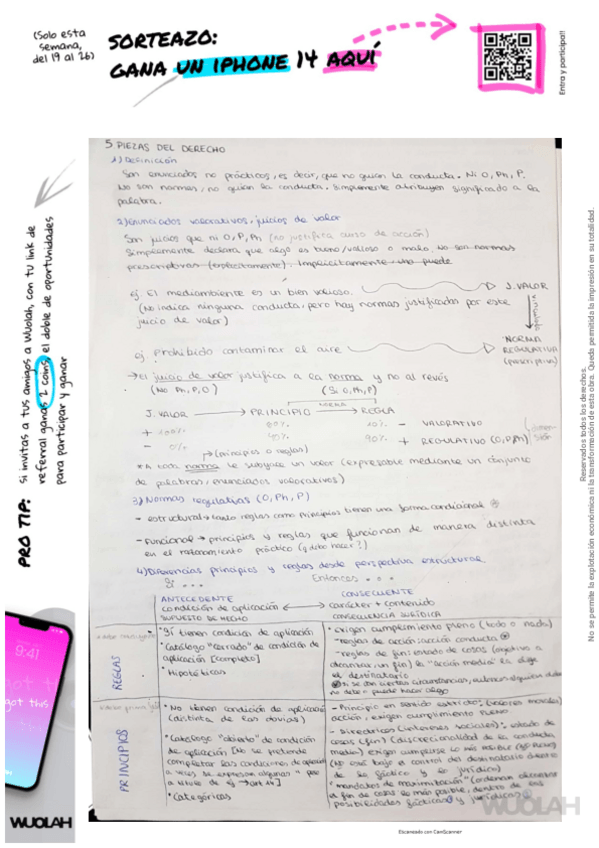 (Solo esta
semana,
del 19 al 26)
SORTEAZO:
GANA UN IPHONE 14 AQUÍ
Entra y participa!!
PRO TIP: Si invitas a tus amigos a Wuolah, con tu link de
referral ganas 2 coins, el doble de oportunidades
para participar y ganar
9:41
got this
WUOLAH
5 PIEZAS DEL DERECHO
1) Definición
Son enunciados no prácticos, es decir, que no guían la conducta. Ni O, Ph, P.
No son normas, no guían la conducta. Simplemente atribuyen significado a la
palabra.
2) Enunciados valorativos, juicios de valor
Son juicios que ni O, P, Ph (no justifica curso de acción)
Simplemente declara que algo es bueno/valioso o malo. No son normas
prescriptivas (explícitamente). Implícitamente, uno puede
ej. El medioambiente es un bien valioso. J. VALOR
(No indica ninguna conducta, pero hay normas justificadas por este
juicio de valor)
justifica
ej Prohibido contaminar el aire
NORMA
REGULATIVA
(prescriptiva)
→ El juicio de valor justifica a la norma y no al revés
(No Ph, P, O) (Sí O, Ph, P)
NORMA
J. VALOR → PRINCIPIO → REGLA
+ 100% 60% 10% - VALORATIVO
- 0% 40% 90% + REGULATIVO (O, P, Ph)
(principios o reglas)
* A toda norma le subyace un valor (expresable mediante un conjunto
de palabras, enunciados valorativos)
3) Normas regulativas (O, Ph, P)
- estructural → tanto reglas como principios tienen una forma condicional
- Funcional → principios y reglas que funcionan de manera distinta
en el razonamiento práctico (¿qué debo hacer?)
4) Diferencias principios y reglas desde perspectiva estructural
Si ... Entonces ...
ANTECEDENTE
condición de aplicación
SUPUESTO DE HECHO
CONSECUENTE
carácter + contenido
CONSECUENCIA JURÍDICA
REGLAS
• Sí tienen condición de aplicación
• Catálogo "cerrado" de condición de
aplicación [completo]
• Hipotéticas
• exigen cumplimiento pleno (todo o nada)
- reglas de acción: acción conducta
- reglas de fin: estado de cosas (objetivo a
alcanzar, un fin) la "acción media" la elige
el destinatario
si se dan ciertas circunstancias, entonces alguien debe
no debe o puede hacer algo
PRINCIPIOS
• No tienen condición de aplicación
(distinta de las obvias)
• Catálogo "abierto" de condición
de aplicación [No se pretende
completar las condiciones de aplicación
a veces se expresan algunas
• Categóricas
- Principio en sentido estricto: (valores morales)
acción, exigen cumplimiento pleno
- Directrices (intereses sociales): estado de
cosas (fin) (discrecionalidad de la conducta
media) exigen cumplirse lo más posible
(No está bajo el control del destinatario dentro
de lo fáctico y lo jurídico)
"mandatos de maximización" (ordenan
el fin de cosas lo más posible, dentro de sus
posibilidades fácticas y jurídicas)
WUOLAH
Escaneado con CamScanner
Reservados todos los derechos.
No se permite la explotación económica ni la transformación de esta obra. Queda permitida la impresión en su totalidad.